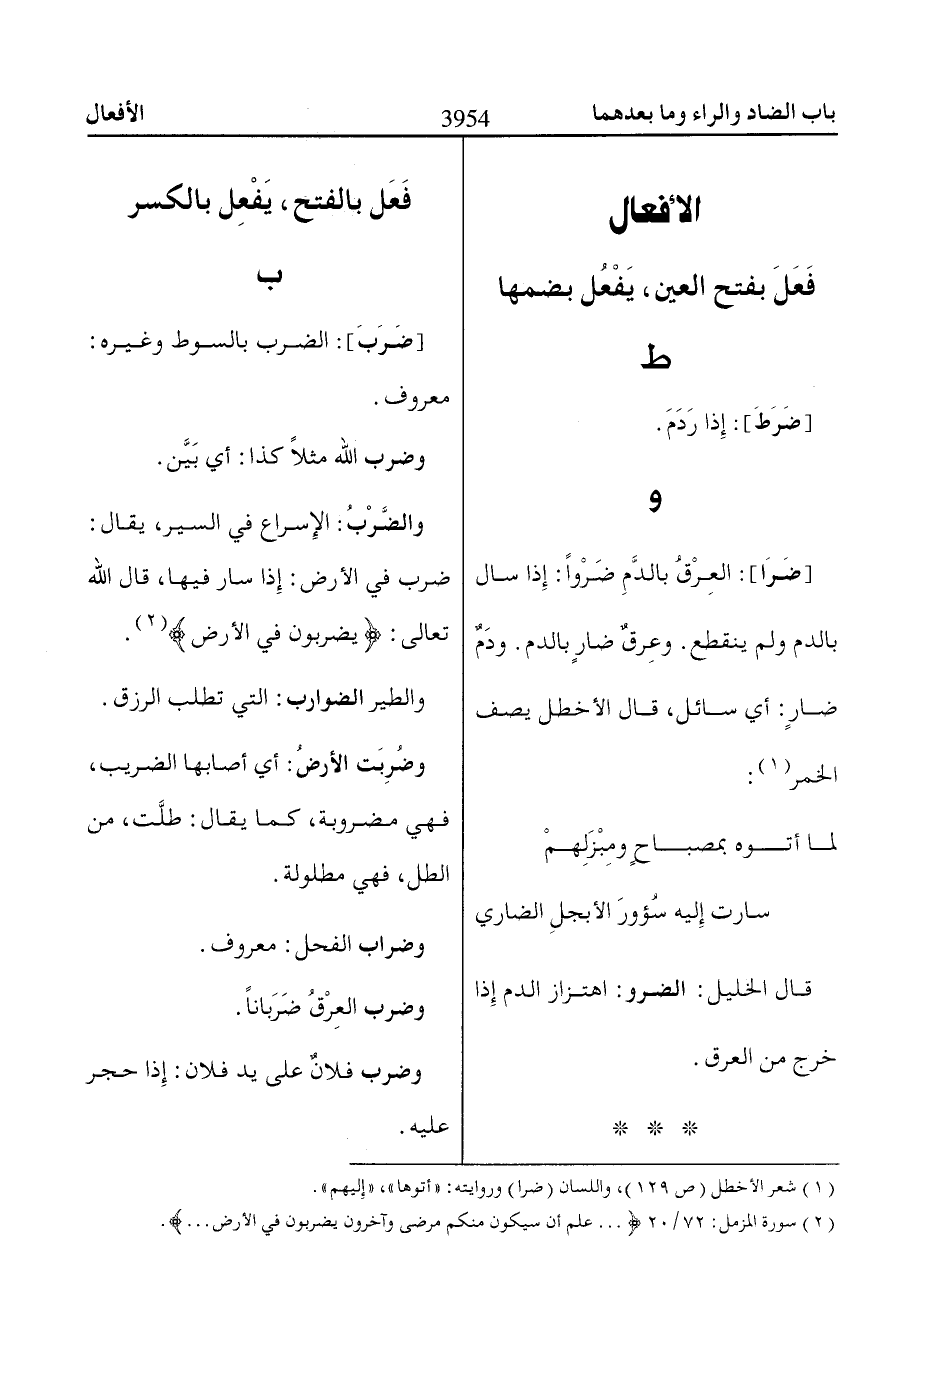 باب الضاد والراء وما بعدهما
3954
الأفعال
الأفعال
فَعَلَ بفتح العين، يَفْعُل بضمها
ط
[ضَرَطَ]: إذا رَدَمَ.
و
[ضَرَا]: العِرْقُ بالدَّمِ ضَرْواً: إذا سال
بالدم ولم ينقطع. وعِرقٌ ضارٍ بالدم. ودَمٌ
ضــارٍ: أي ســائل، قــال الأخطل يصف
الخمر(١):
لمــا أتــــوه بمصبـــاحٍ ومِبْزَلِهِــمْ
سارت إليه سُؤورَ الأبجلِ الضاري
قــال الخليل: الضرو: اهتــزاز الدم إذا
خرج من العرق.
* * *
فَعَل بالفتح، يَفْعِل بالكسر
ب
[ضَرَبَ]: الضرب بالسوط وغيره:
معروف.
وضرب الله مثلاً كذا: أي بَيَّن.
والضَّرْبُ: الإسراع في السير، يقال:
ضرب في الأرض: إذا سار فيها، قال الله
تعالى: ﴿يضربون في الأرض﴾(٢).
والطير الضوارب: التي تطلب الرزق.
وضُرِبَت الأرضُ: أي أصابها الضريب،
فهي مضروبة، كما يقال: طلَّت، من
الطل، فهي مطلولة.
وضراب الفحل: معروف.
وضرب العِرْقُ ضَرَبَاناً.
وضرب فلانٌ على يد فلان: إذا حجر
عليه.
(١) شعر الأخطل (ص ١٢٩)، واللسان (ضرا) وروايته: «أتوها»، «إليهم».
(٢) سورة المزمل: ٧٢/ ٢٠ ﴿... علم أن سيكون منكم مرضى وآخرون يضربون في الأرض...﴾.